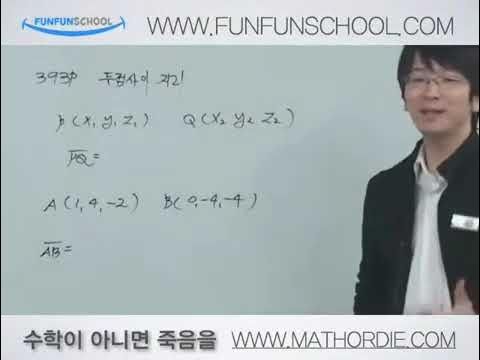 FUNFUNSCHOOL WWW.FUNFUNSCHOOL.COM
393p 두점사이 거리
P(x₁ y₁ z₁) Q(x₂ y₂ z₂)
PQ =
A(1, 4, -2) B(0, -4, -4)
AB =
수학이 아니면 죽음을 WWW.MATHORDIE.COM